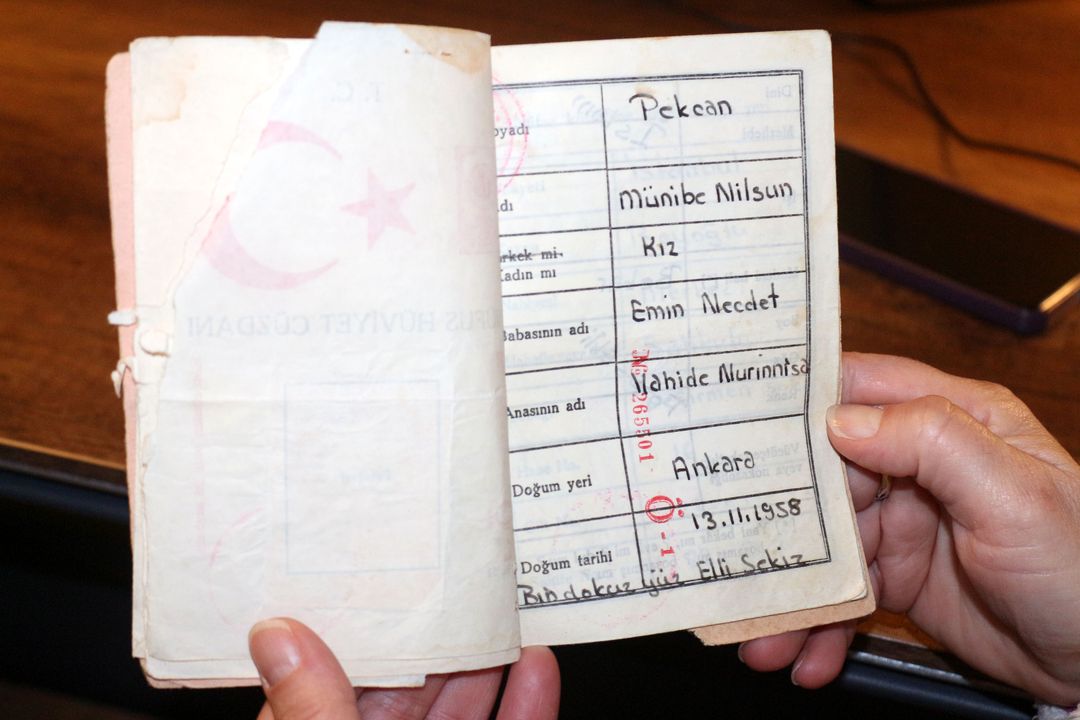 oyadı Pekcan
dı Münibe Nilsun
rkek mi-
adın mı Kız
Babasının adı Emin Necdet
Anasının adı Vahide Nurinnisa
Doğum yeri Ankara
Doğum tarihi 13.11.1958
Bin dokuz yüz Elli Sekiz
№ 265501
Ö-1
T. C.
FUS HÜVİYET CÜZDANI
Dini
Mezhebi